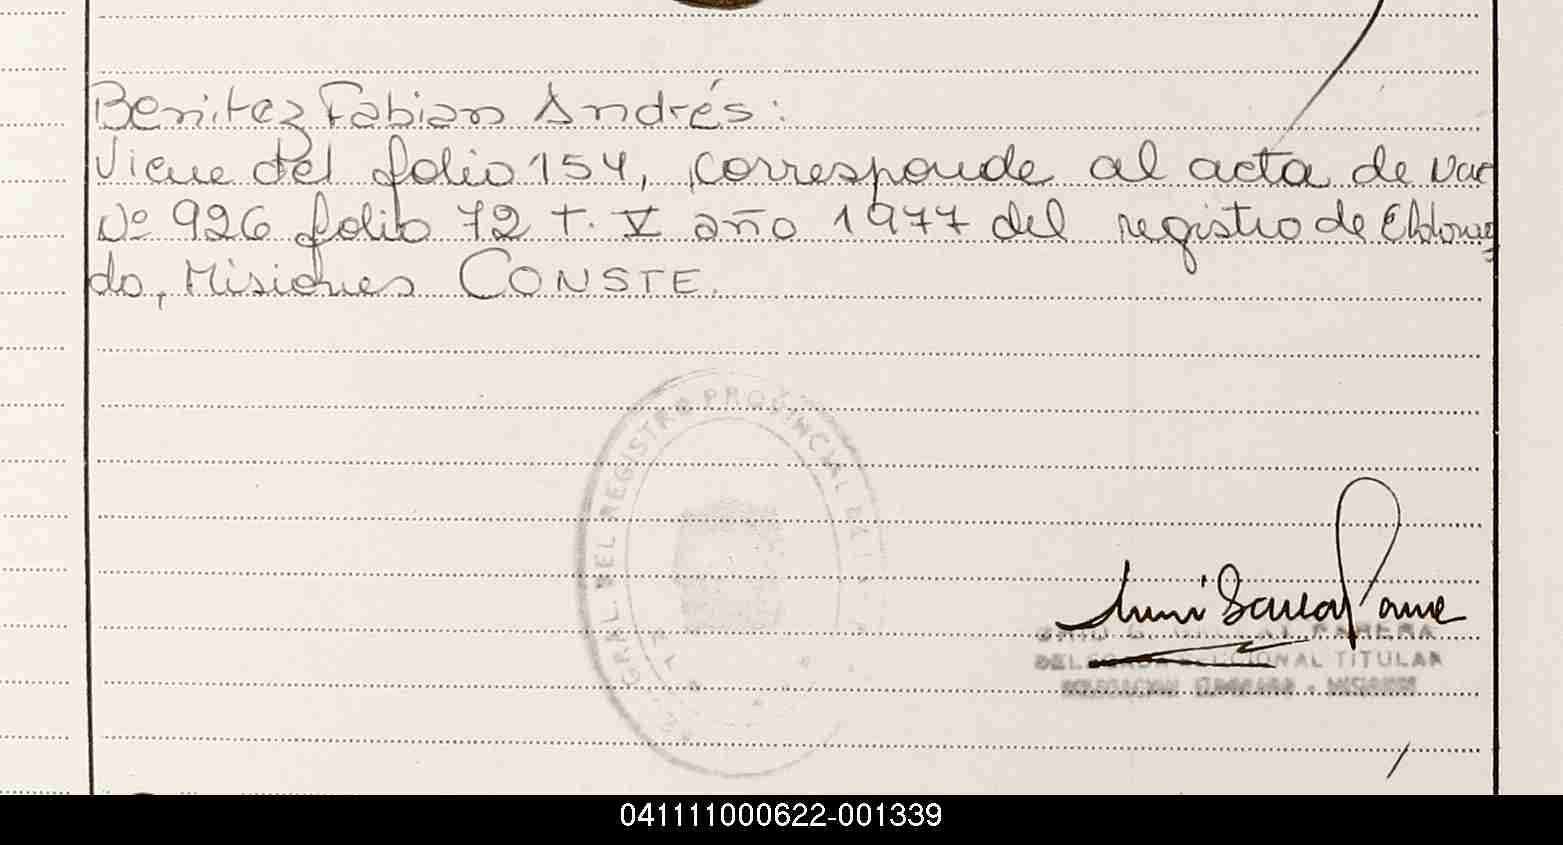 Benitez Fabian Andrés:
Viene del folio 154, corresponde al acta de Nac
Nº 926 folio 72 T. V año 1977 del registro de Eldora
do, Misiones CONSTE.
GRAL. DEL REGISTRO PROVINCIAL DE
PARERA
DELEGADA SECCIONAL TITULAR
DELEGACION ELDORADO - MISIONES
041111000622-001339